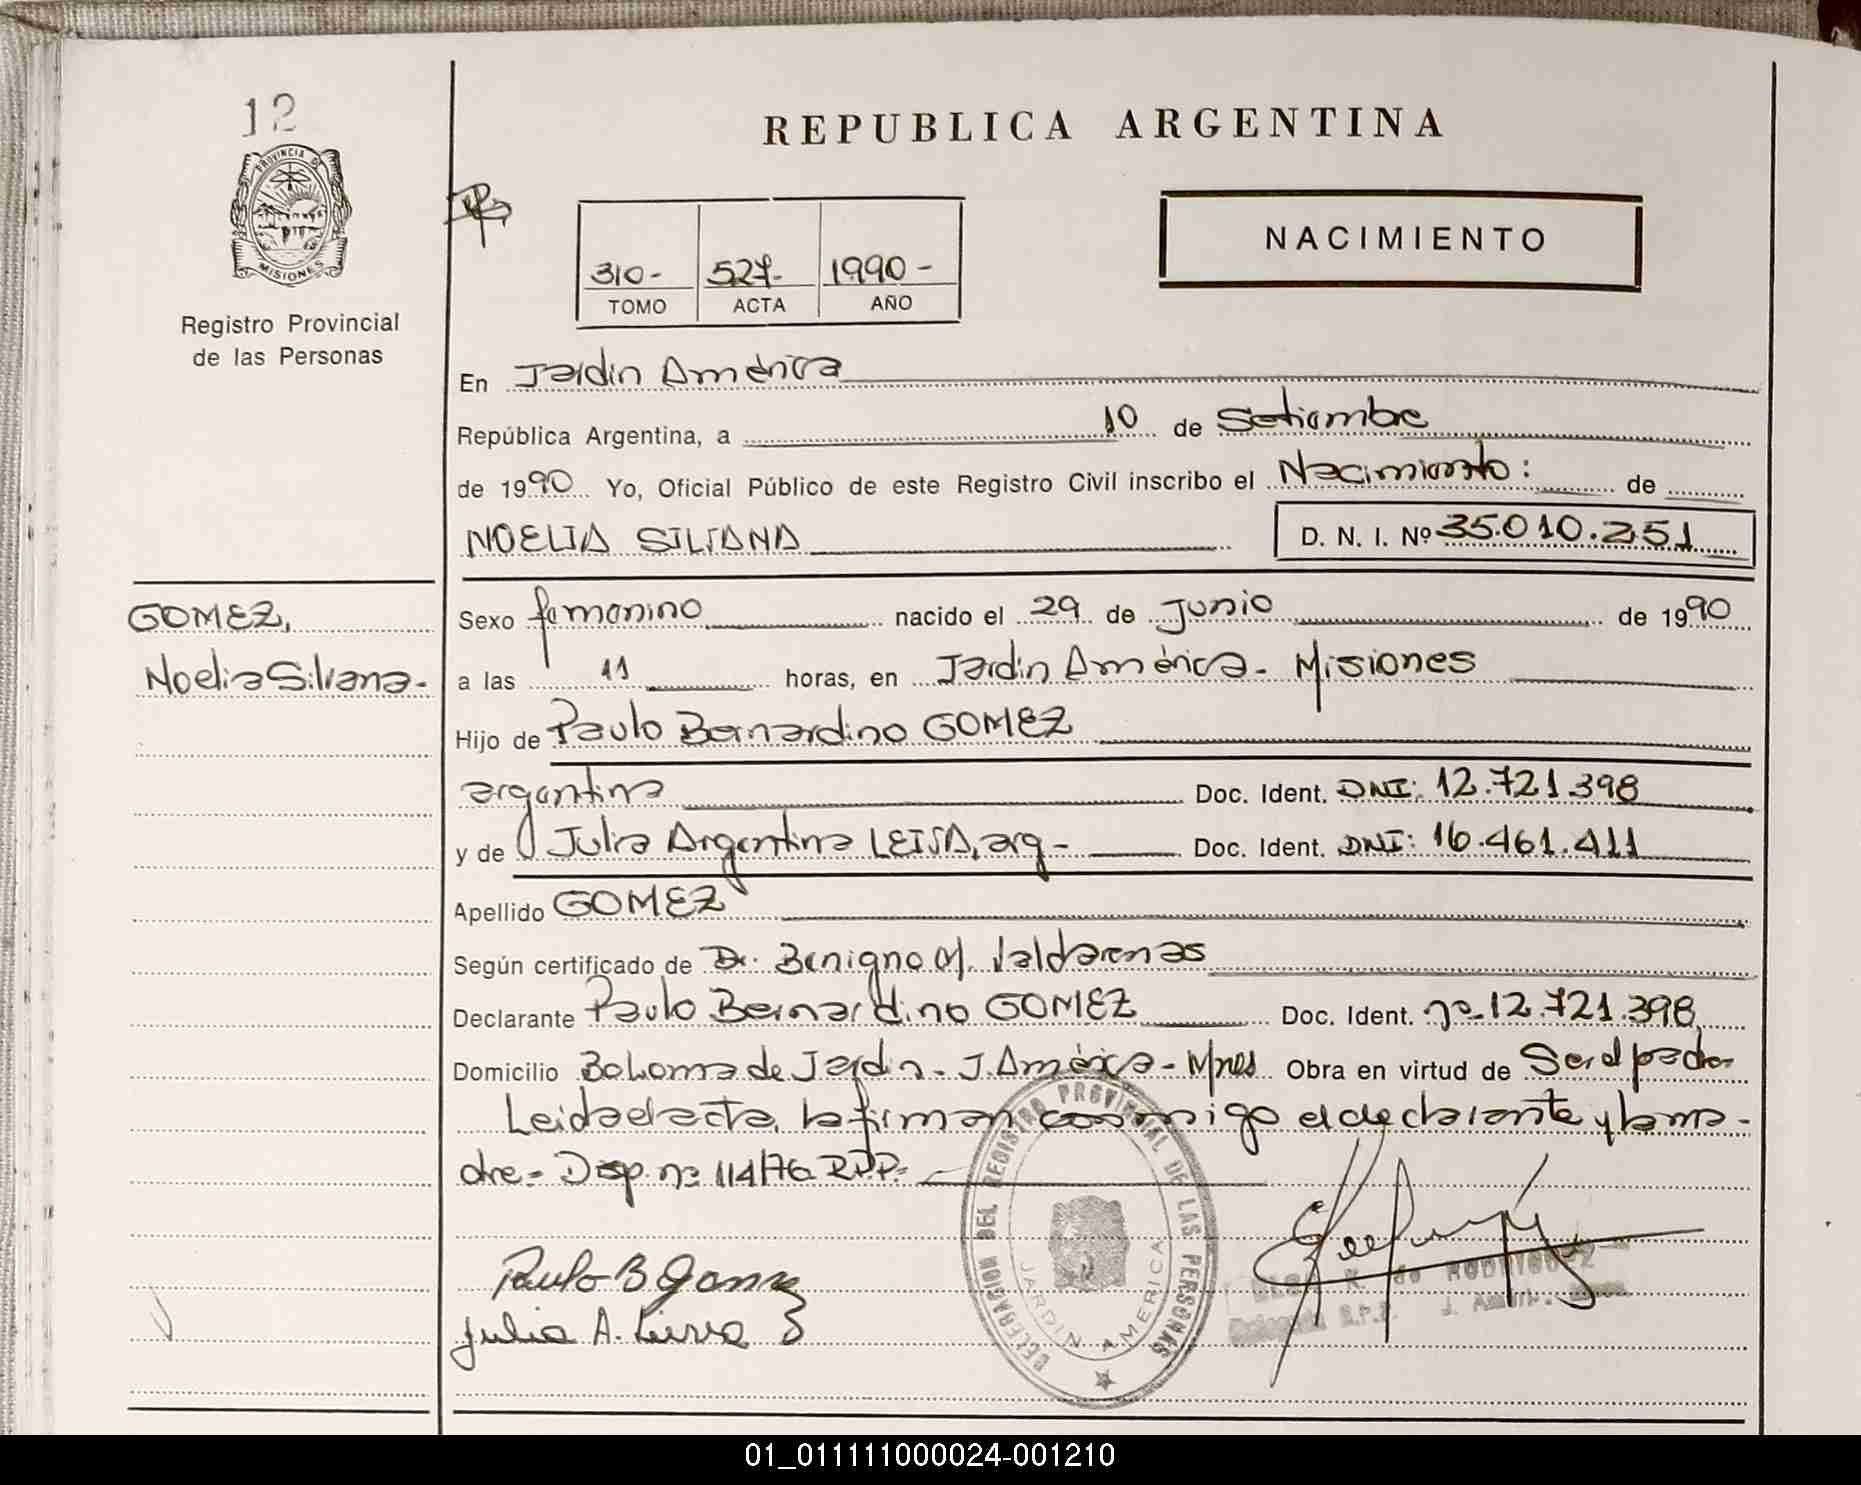 12
PROVINCIA DE
MISIONES
Registro Provincial
de las Personas
REPUBLICA ARGENTINA
NACIMIENTO
310- 527- 1990-
TOMO ACTA AÑO
En Jardin América
República Argentina, a 10 de Setiembre
de 1990 Yo, Oficial Público de este Registro Civil inscribo el Nacimiento: de
NOELIA SILVANA D. N. I. Nº 35.010.251
GOMEZ,
Noelia Silvana-
Sexo femenino nacido el 29 de Junio de 1990
a las 11 horas, en Jardin América- Misiones
Hijo de Paulo Bernardino GOMEZ
argentina Doc. Ident. DNI: 12.721.398
y de Julia Argentina LEIVA, arg- Doc. Ident. DNI: 16.461.411
Apellido GOMEZ
Según certificado de Dr. Benigno M. Valdarenas
Declarante Paulo Bernardino GOMEZ Doc. Ident. nº 12.721.398,
Domicilio Bo Loma de Jardin- J. América- Mnes Obra en virtud de Ser el padre
Leida el acta, la firman conmigo el declarante y la ma-
dre= Disp. nº 114/76 R.P.P.=
DELEGACION DEL REGISTRO PROVINCIAL DE LAS PERSONAS
JARDIN AMERICA
Paulo B Gomez
Julia A. Leiva
K. de RODRIGUEZ
Delegada R.P.P. J. América
01_011111000024-001210